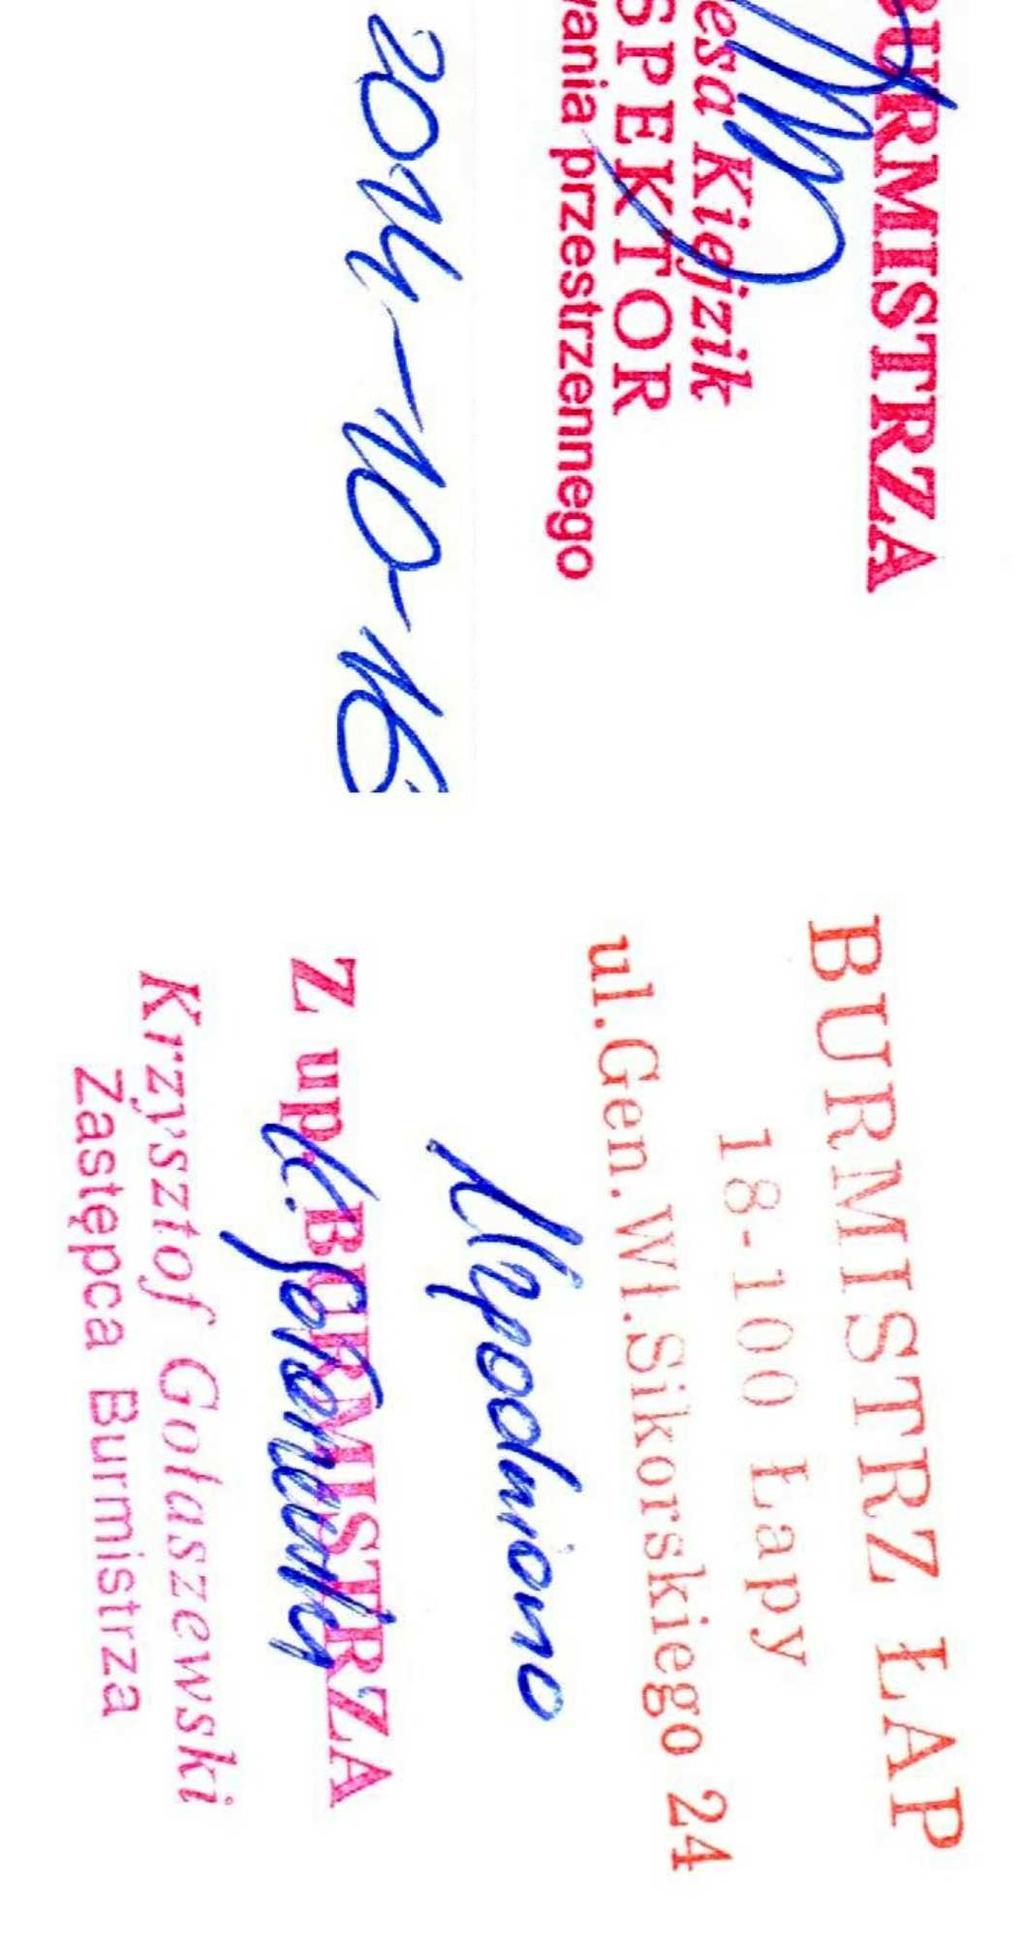 BURMISTRZA
esa Kiejzik
SPEKTOR
wania przestrzennego
2014-10-16
BURMISTRZ ŁAP
18-100 Łapy
ul.Gen.Wł.Sikorskiego 24
Uzgodniono
Z up. BURMISTRZA
K. Gołaszewski
Krzysztof Gołaszewski
Zastępca Burmistrza